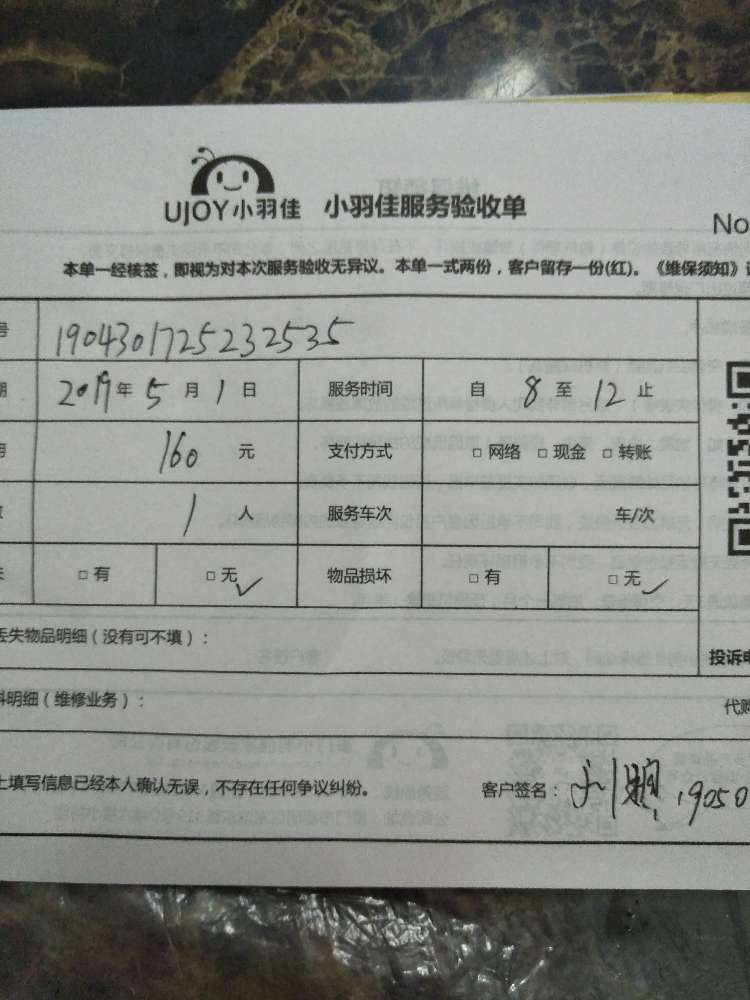 UJOY小羽佳 小羽佳服务验收单
No
本单一经核签，即视为对本次服务验收无异议。本单一式两份，客户留存一份(红)。《维保须知》
号 1904301725232535
期 2019年 5 月 1 日 服务时间 自 8 至 12 止
160 元 支付方式 □ 网络 □ 现金 □ 转账
1 人 服务车次 车/次
□ 有 □ 无 ✓ 物品损坏 □ 有 □ 无 ✓
丢失物品明细（没有可不填）：
投诉电
料明细（维修业务）：
代购
上填写信息已经本人确认无误，不存在任何争议纠纷。 客户签名： 19050